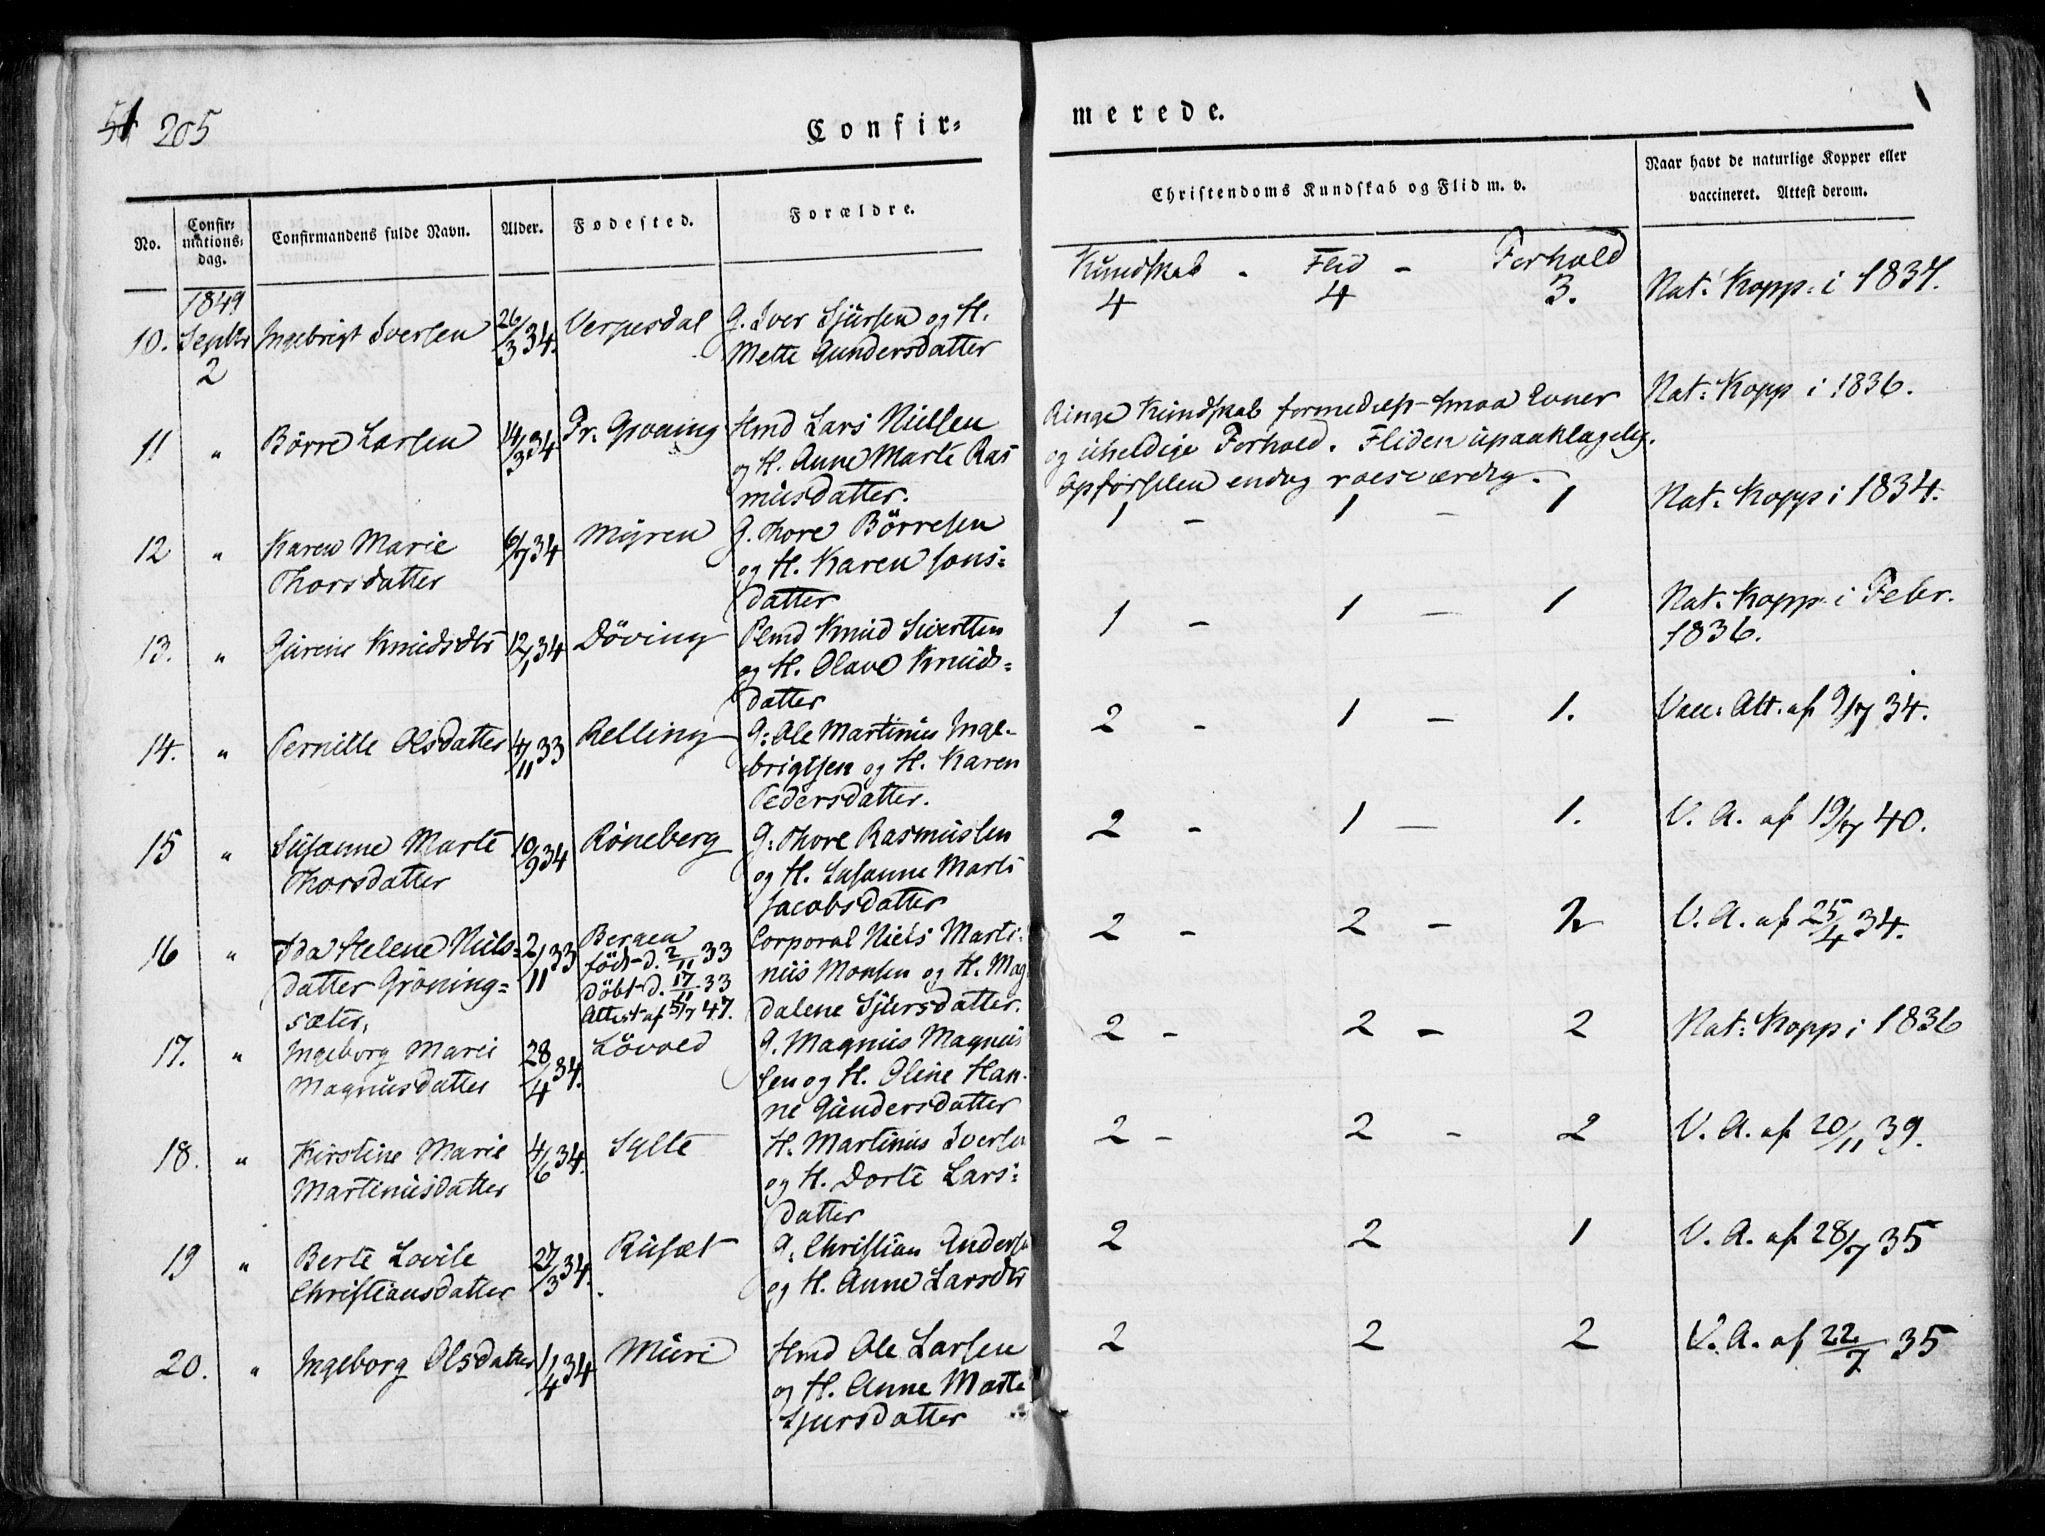 51 205
Confir=
merede.
No.
Confir=
mations=
dag.
Confirmandens fulde Navn.
Alder.
Fødested.
Forældre.
Christendoms Kundskab og Flid m. v.
Naar havt de naturlige Kopper eller
vaccineret. Attest derom.
Kundskab - Flid - Forhold
1849
10. Septbr Ingebrigt Iversen 26/3 34. G. Iver Sjursen og H. 4 4 3. Nat. Kopp. i 1834.
2 Mette Gundersdatter
11 " Börre Larsen 14/3 34 Hmd Lars Nielsen Ringe Kundskab formedelst smaa Evner Nat: Kopp i 1836.
og H. Anne Marte Ras og uheldige Forhold. Fliden upaaklagelig.
musdatter. Opførselen endog roesværdig.
12 " Karen Marie 6/7 34 Myren G. Thore Börresen 1 - 1 - 1 Nat. Kopp i 1834.
Thorsdatter og H. Karen Jons=
datter
13. " Gurine Knudsdtr 12/1 34 Döving Plmd Knud Sivertsen 1 - 1 - 1 Nat. Kopp i Febr.
og H. Olave Knuds= 1836.
datter
14. " Pernille Olsdatter 4/11 33 Relling G: Ole Martinus Inge- 2 - 1 - 1. Vacc. Att. af 9/7 34.
brigtsen og H. Karen
Pedersdatter.
15 " Susanne Marte 10/9 34 Röneberg G: Thore Rasmussen 2 - 1 - 1. V. A. af 19/7 40.
Thorsdatter og H. Susanne Marte
Jacobsdatter
16 " Ida Helene Niels= 2/11 33 Bergen Corporal Niels Marti= 2 - 2 - 2 V. A. af 25/4 34.
datter Gröning= född d. 2/11 33 nus Monsen og H. Mag
sæter. döbt d. 17/11 33 dalene Sjursdatter.
Attest af 5/7 47.
17. " Ingeborg Marie 28/4 34. Lövold G. Magnus Magnus 2 - 2 - 2 Nat: Kopp i 1836
Magnusdatter sen og H. Oline Han-
ne Gundersdatter
18. " Kirstine Marie 4/6 34. Sylte H. Martinus Iversen 2 - 2 - 2 V. A. af 20/11 39.
Martinusdatter og H. Dorte Lars=
datter
19 " Berte Lovise 27/3 34. Rusæt G: Christian Andersen 2 2 1 V. A. af 28/7 35
Christiansdatter og H. Anne Larsdtr
20. " Ingeborg Olsdatter 1/4 34 Muri Hmd Ole Larsen 2 2 2 V. A. af 22/7 35
og H. Anne Marte
Sjursdatter